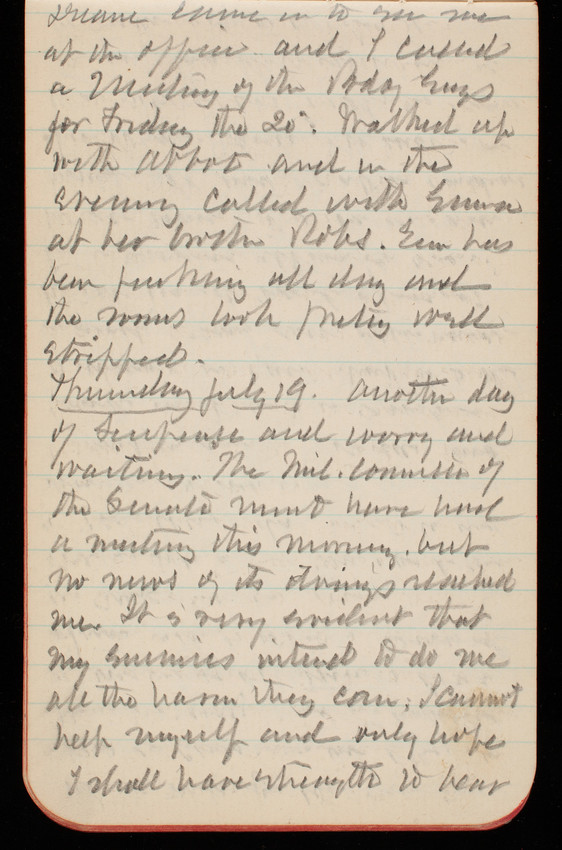 came in to see me
at the office and I called
a Meeting of the Body Guys
for Friday the 20". Walked up
with Abbot and in the
evening called with Emma
at her brother Robs. Em has
been packing all day and
the rooms look pretty well
stripped.
Thursday July 19. Another day
of Suspense and worry and
waiting. The Mil. Committee of
the Senate must have had
a meeting this morning, but
no news of its doings reached
me. It is very evident that
my enemies intend to do me
all the harm they can. I cannot
help myself and only hope
I shall have strength to bear